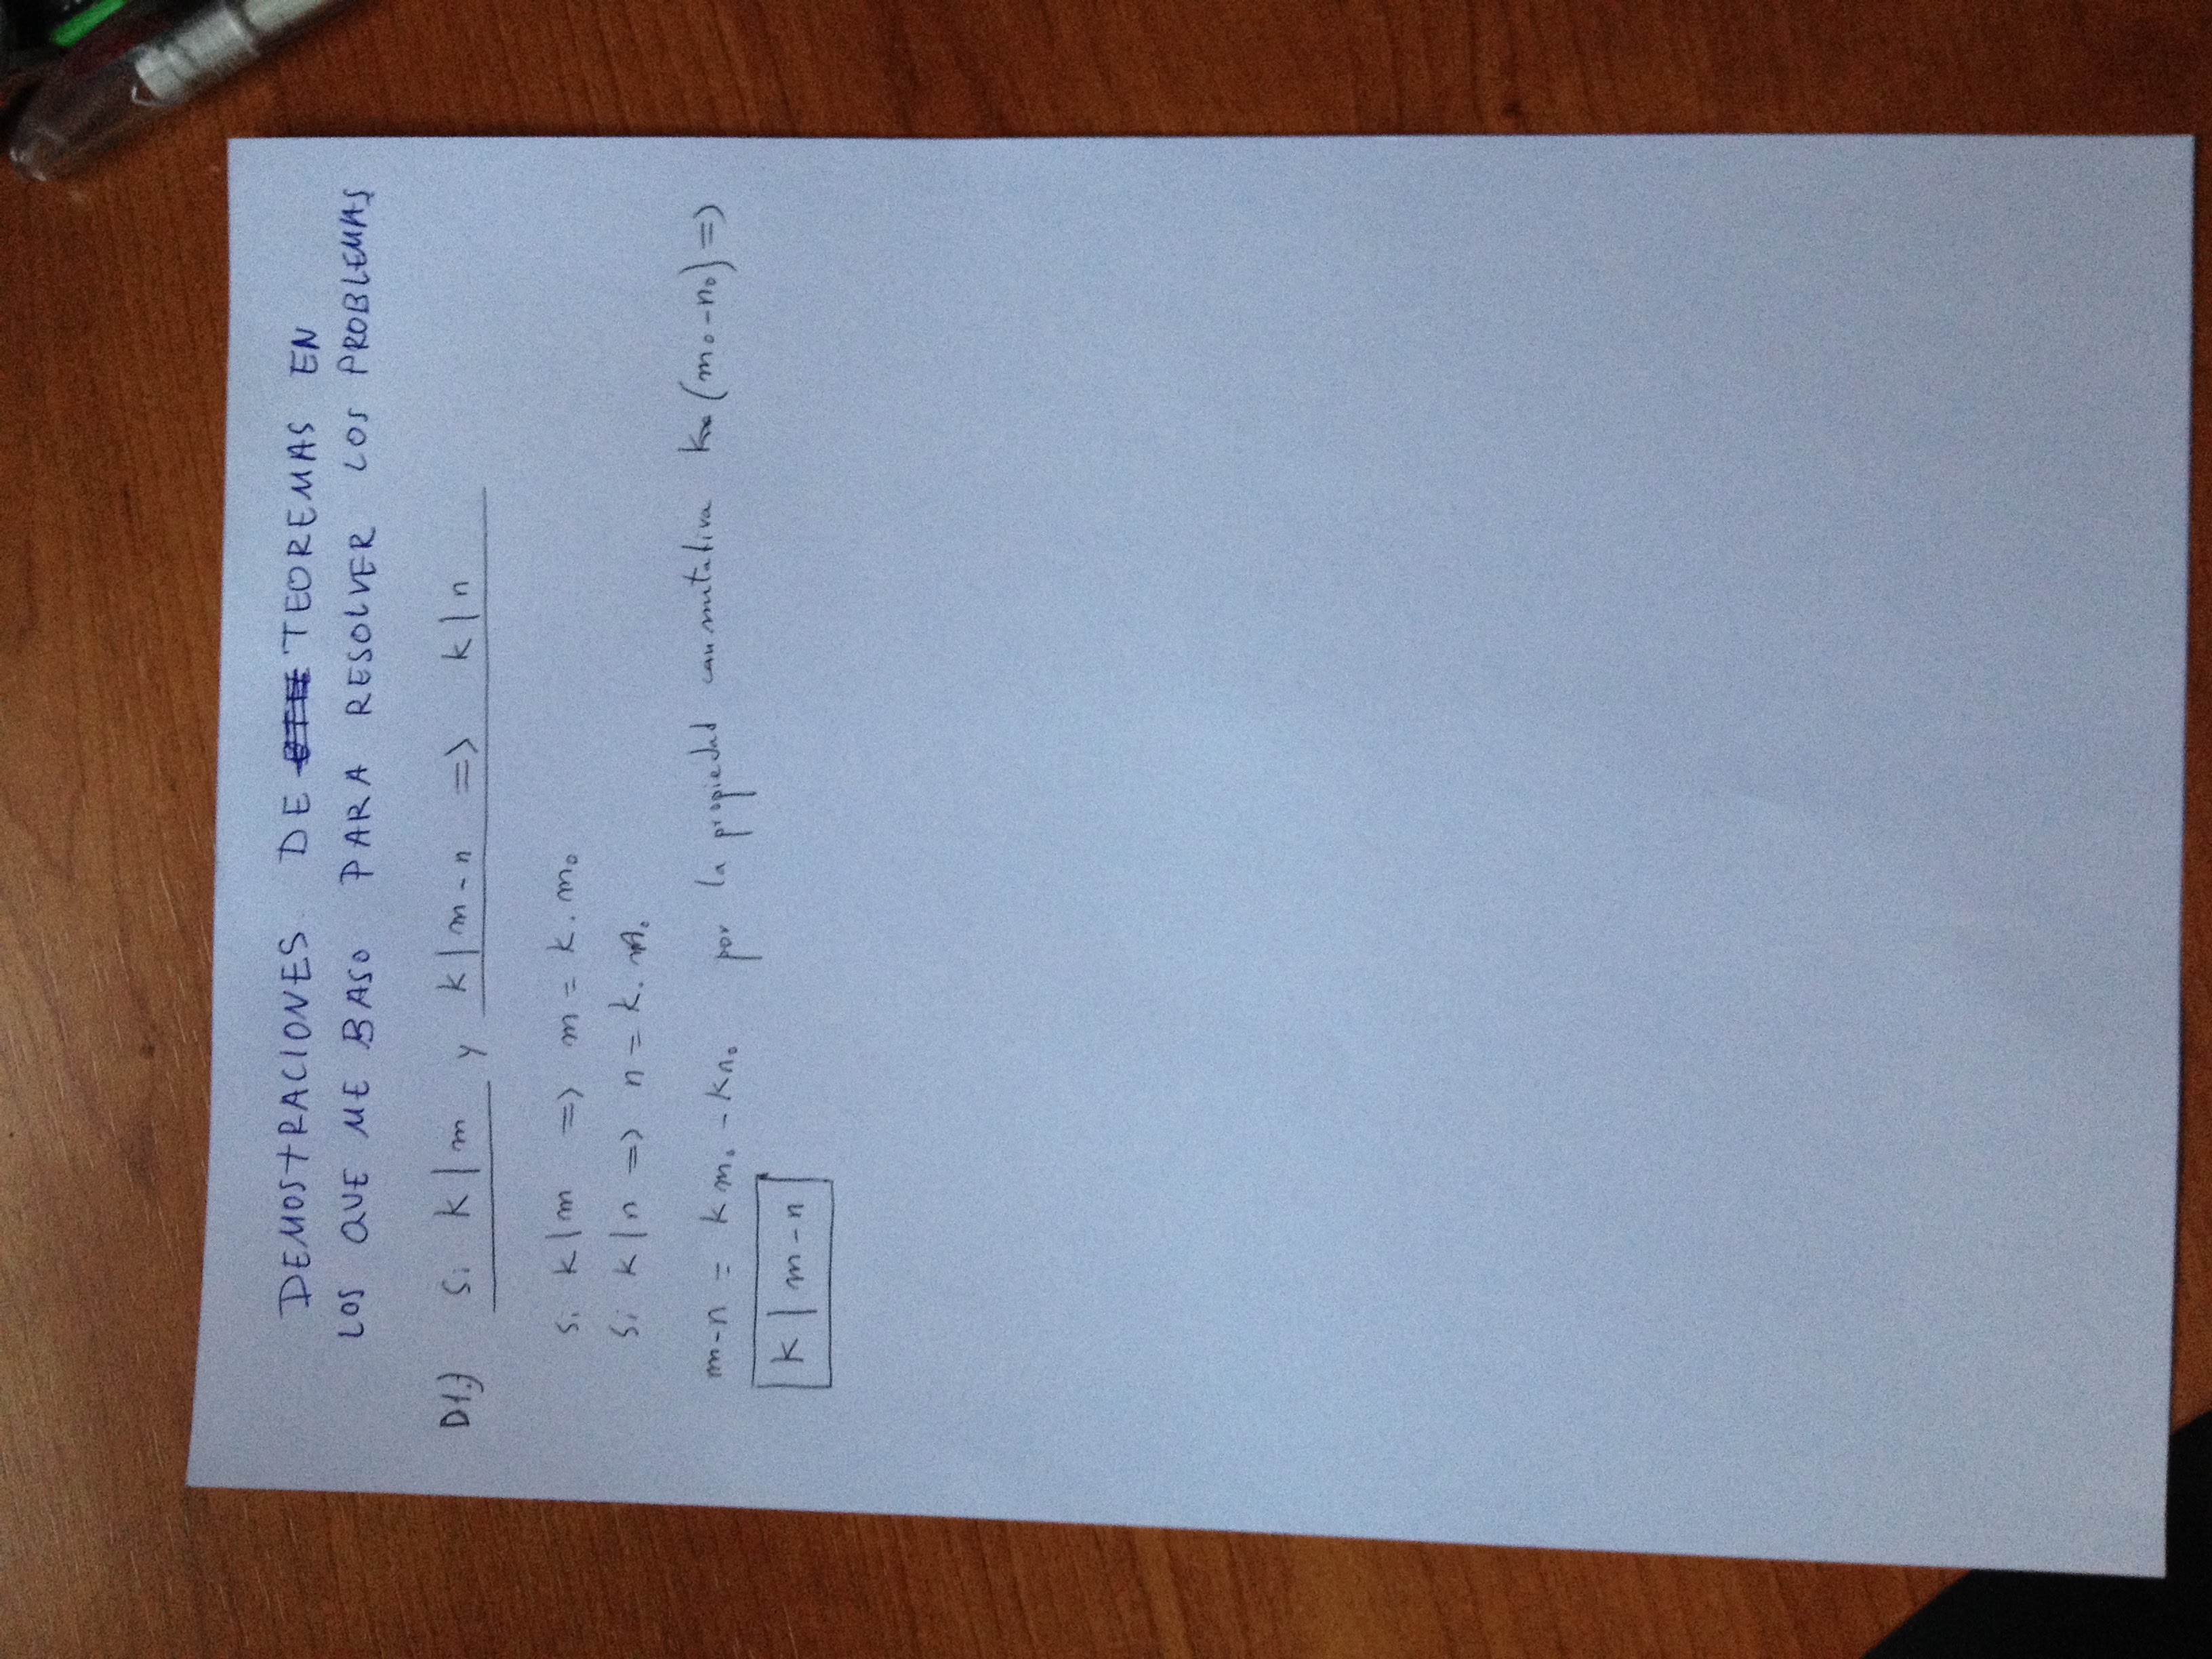 DEMOSTRACIONES DE TEOREMAS EN
LOS QUE ME BASO PARA RESOLVER LOS PROBLEMAS
D1.) Si k | m y k | m - n => k | n
Si k | m => m = k . m₀
Si k | n => n = k . n₀
m - n = k m₀ - k n₀ por la propiedad conmutativa k (m₀ - n₀) =>
k | m - n